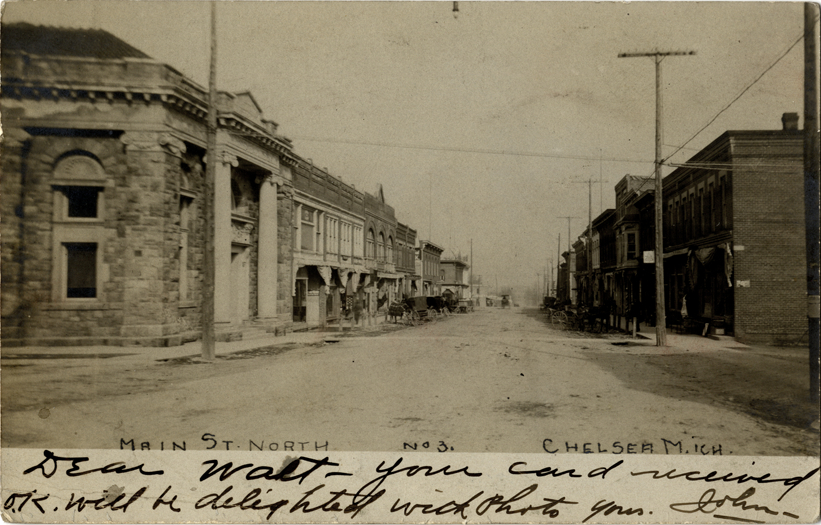 MAIN ST. NORTH No 3. CHELSEA MICH.
Dear Walt - your card received
O.K. will be delighted with Photo yours. John -